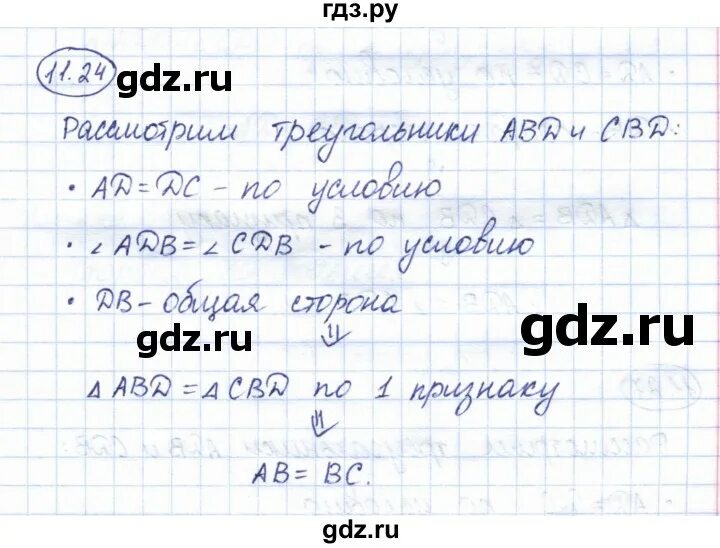 гдз.ру
11.24
gdz.ru
Рассмотрим треугольники ABD и CBD:
• AD=DC - по условию
• ∠ADB=∠CDB - по условию
• DB - общая сторона
gdz.ru
gdz.ru
⇓
△ABD=△CBD по 1 признаку
⇓
AB=BC.
gdz.ru